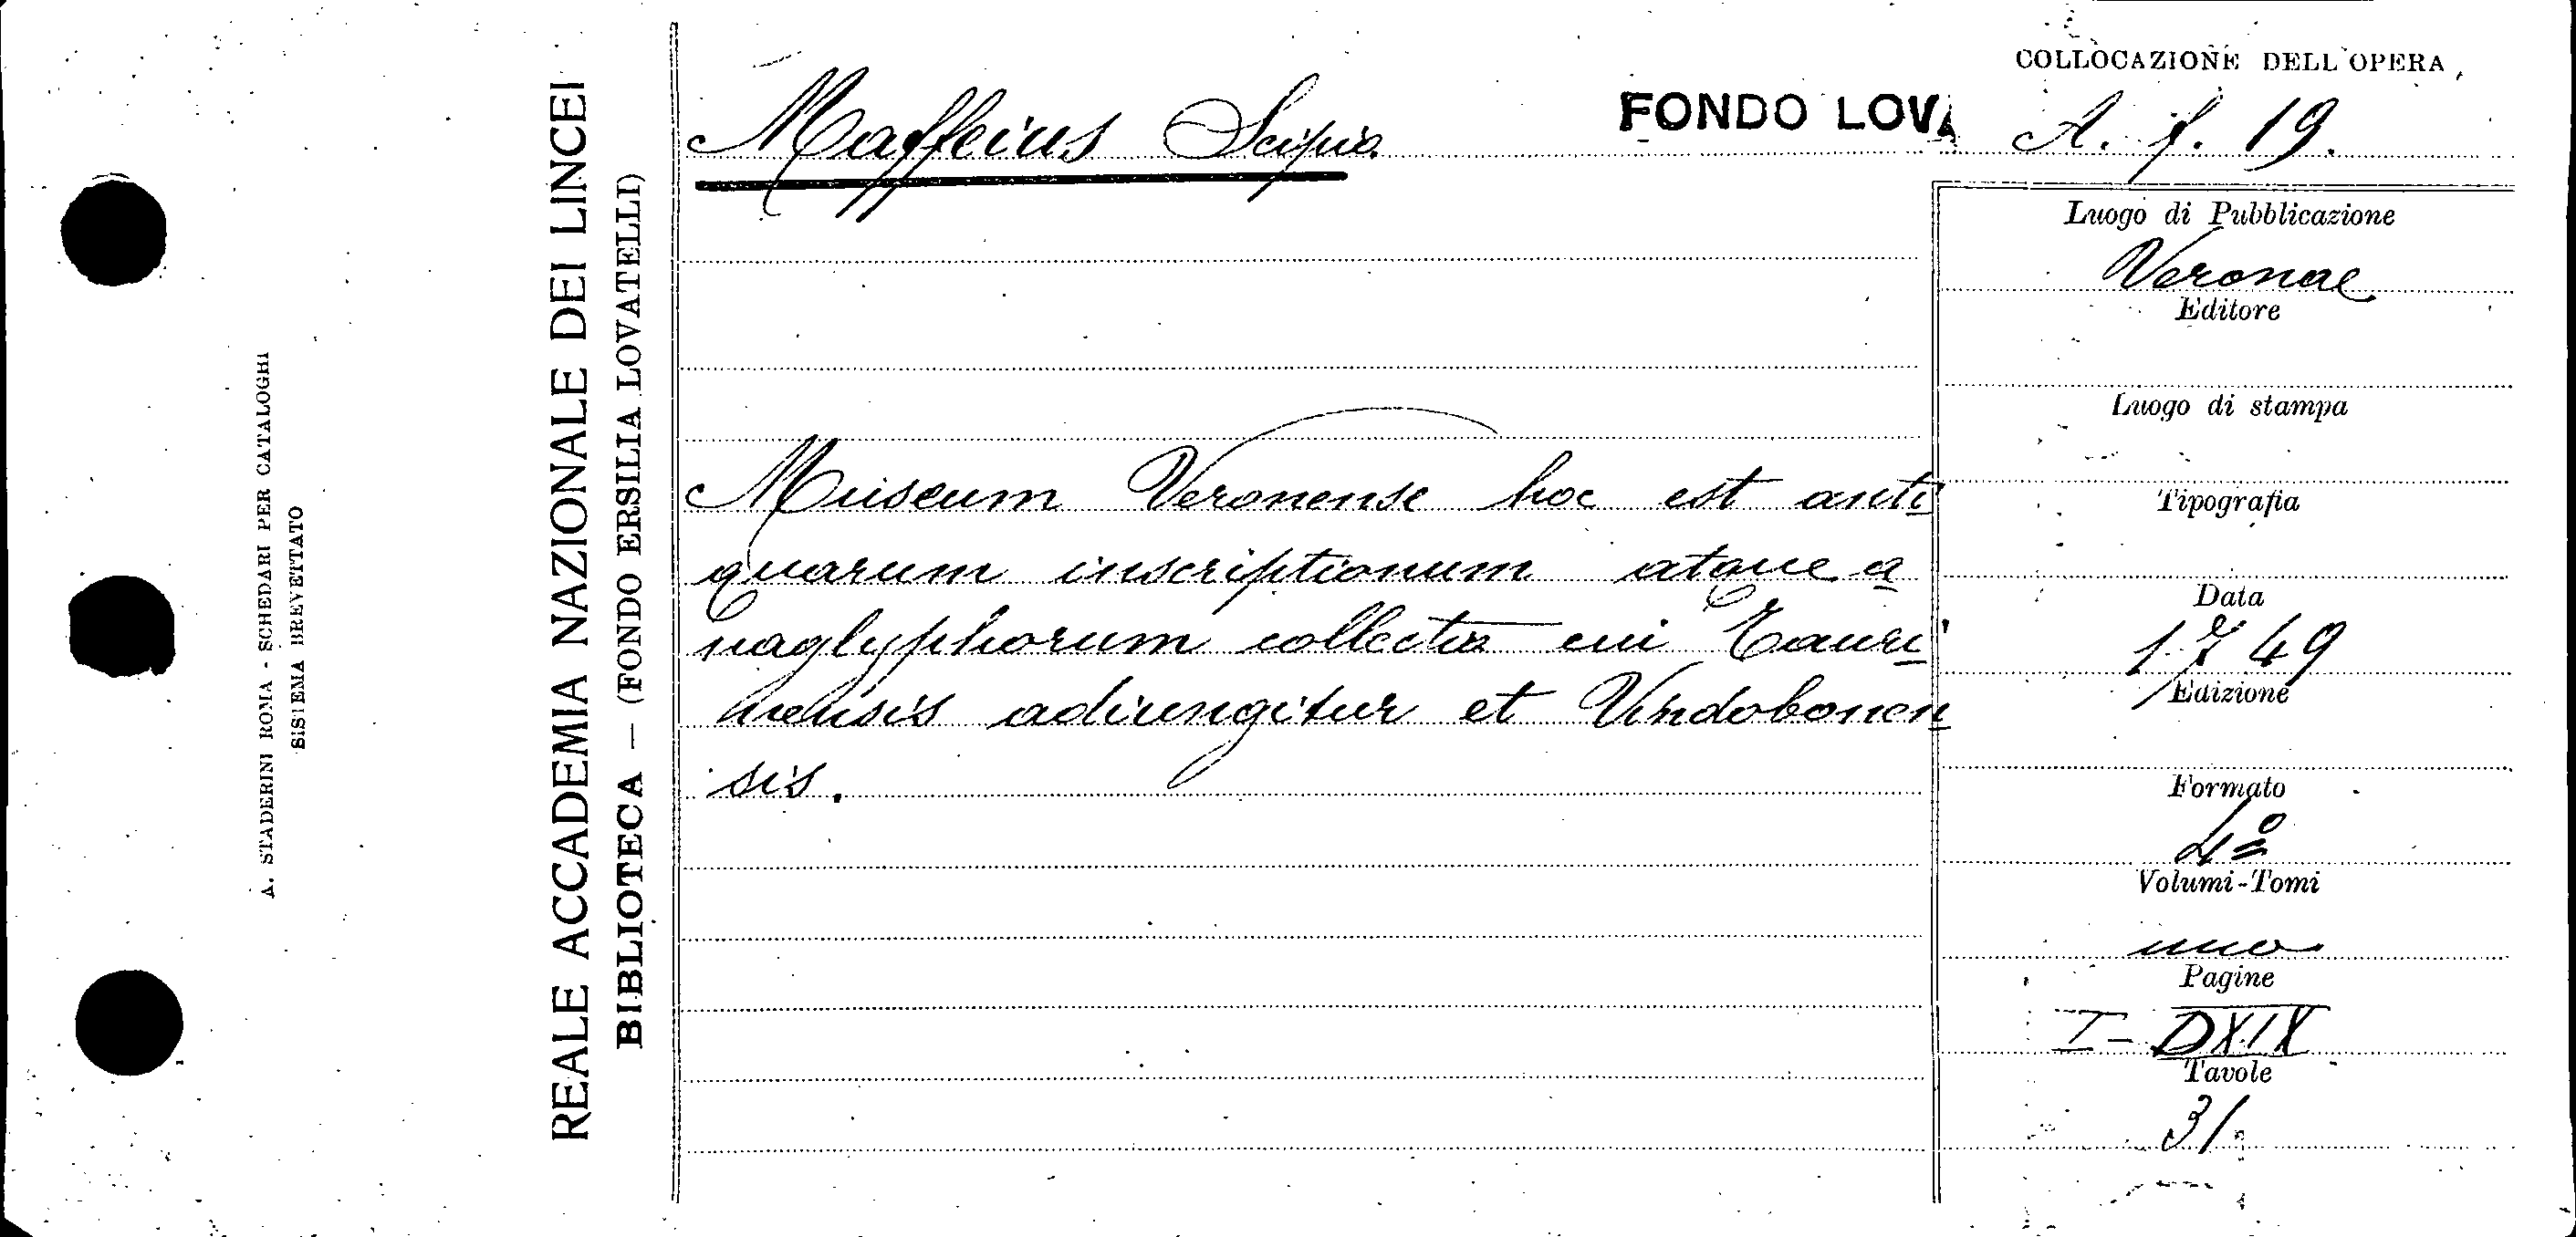 A. STADERINI ROMA - SCHEDARI PER CATALOGHI
SISTEMA BREVETTATO
REALE ACCADEMIA NAZIONALE DEI LINCEI
BIBLIOTECA — (FONDO ERSILIA LOVATELLI)
Maffeius Scipio
FONDO LOVA
Museum Veronense hoc est anti
quarum inscriptionum atque a
naglyphorum collectio cui Tauri
nensis adiungitur et Vindobonen
sis.
COLLOCAZIONE DELL'OPERA
A. f. 19.
Luogo di Pubblicazione
Veronae
Editore
Luogo di stampa
Tipografia
Data
1749
Edizione
Formato
4º
Volumi-Tomi
uno
Pagine
I - DXIX
Tavole
31